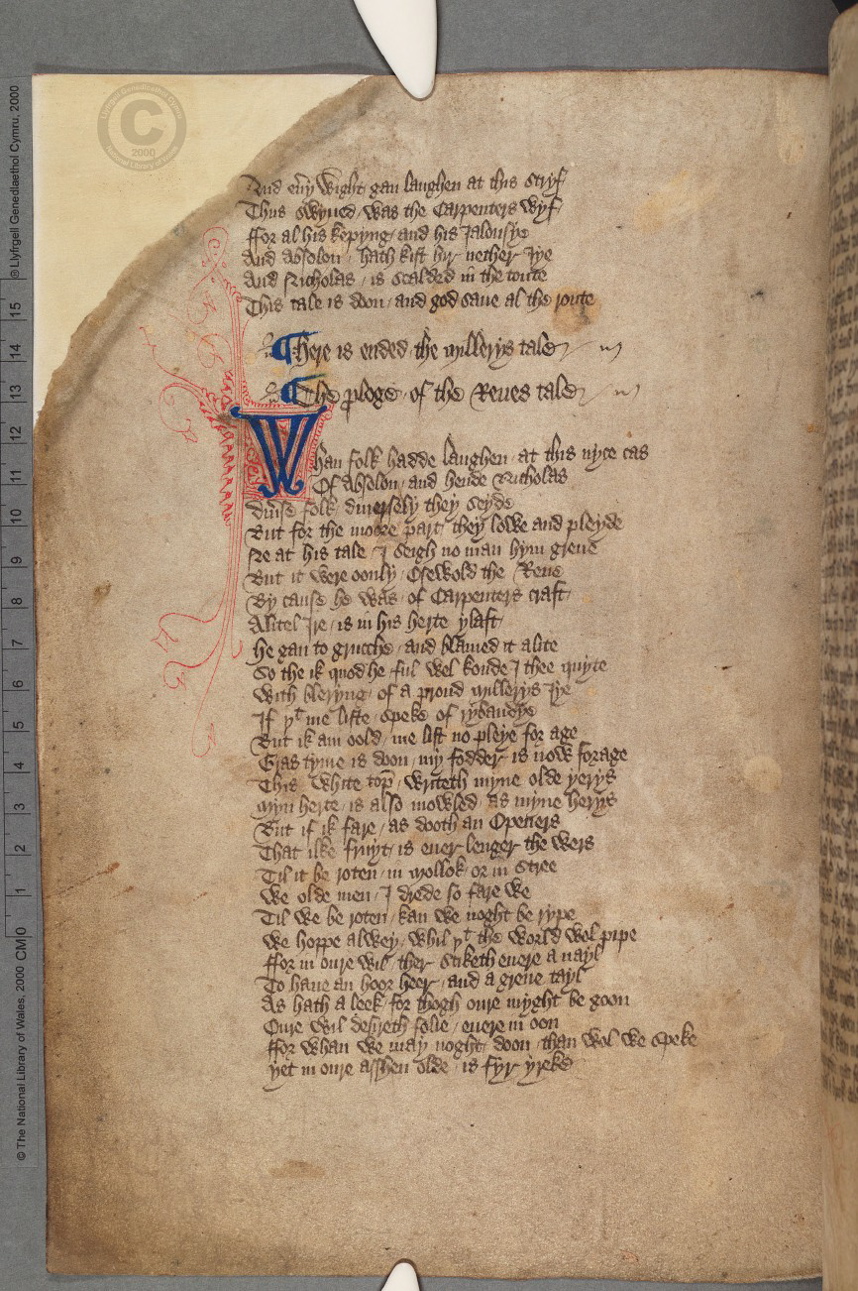 And eūy wight gan laughen at this stryf
Thus swyued / was the Carpenters wyf
ffor al his kepyng / and his Jalousye
And Absolon / hath kist hir nether Iye
And Nicholas / is scalded in the toute
This tale is doon / and god saue al the route
¶ Here is ended the Millerys tale
¶ The ploge of the Reues tale
Whan folk hadde laughen / at this nyce cas
Of Absolon / and hende Nicholas
Diuse folk / diuersely they seyde
But for the moore part / they lowe and pleyde
Ne at his tale I seigh no man hym greue
But it were oonly / Osewold the Reue
By cause he was / of Carpenters craft
A litel Ire / is in his herte ylaft
he gan to grucche / and blamed it a lite
So the ik quod he / ful wel koude I thee quyte
With bleryng / of a proud Millerys Iye
If yt me liste / speke of rybaudye
But ik am oold / me list no pleye for age
Gras tyme is doon / my fodder is now forage
This white top / writeth myne olde yerys
Myn herte / is also mowled / as myne herys
But if ik fare / as dooth an Openers
That ilke fruyt / is euer lenger the wers
Til it be roten / in mollok or in stree
We olde men / I drede so fare we
Til we be roten / kan we noght be rype
We hoppe alwey / whil yt the world wol pipe
ffor in oure wil / ther stiketh euere a nayl
To haue an hoor heer / and a grene tayl
As hath a leek / for thogh oure myght be goon
Oure wil desireth folie / euere in oon
ffor whan we may noght doon / than wol we speke
Yet in oure asshen olde / is fyr yreke
© Llyfrgell Genedlaethol Cymru, 2000
15
14
13
12
11
10
9
8
7
6
5
4
3
2
1
CM 0
© The National Library of Wales, 2000